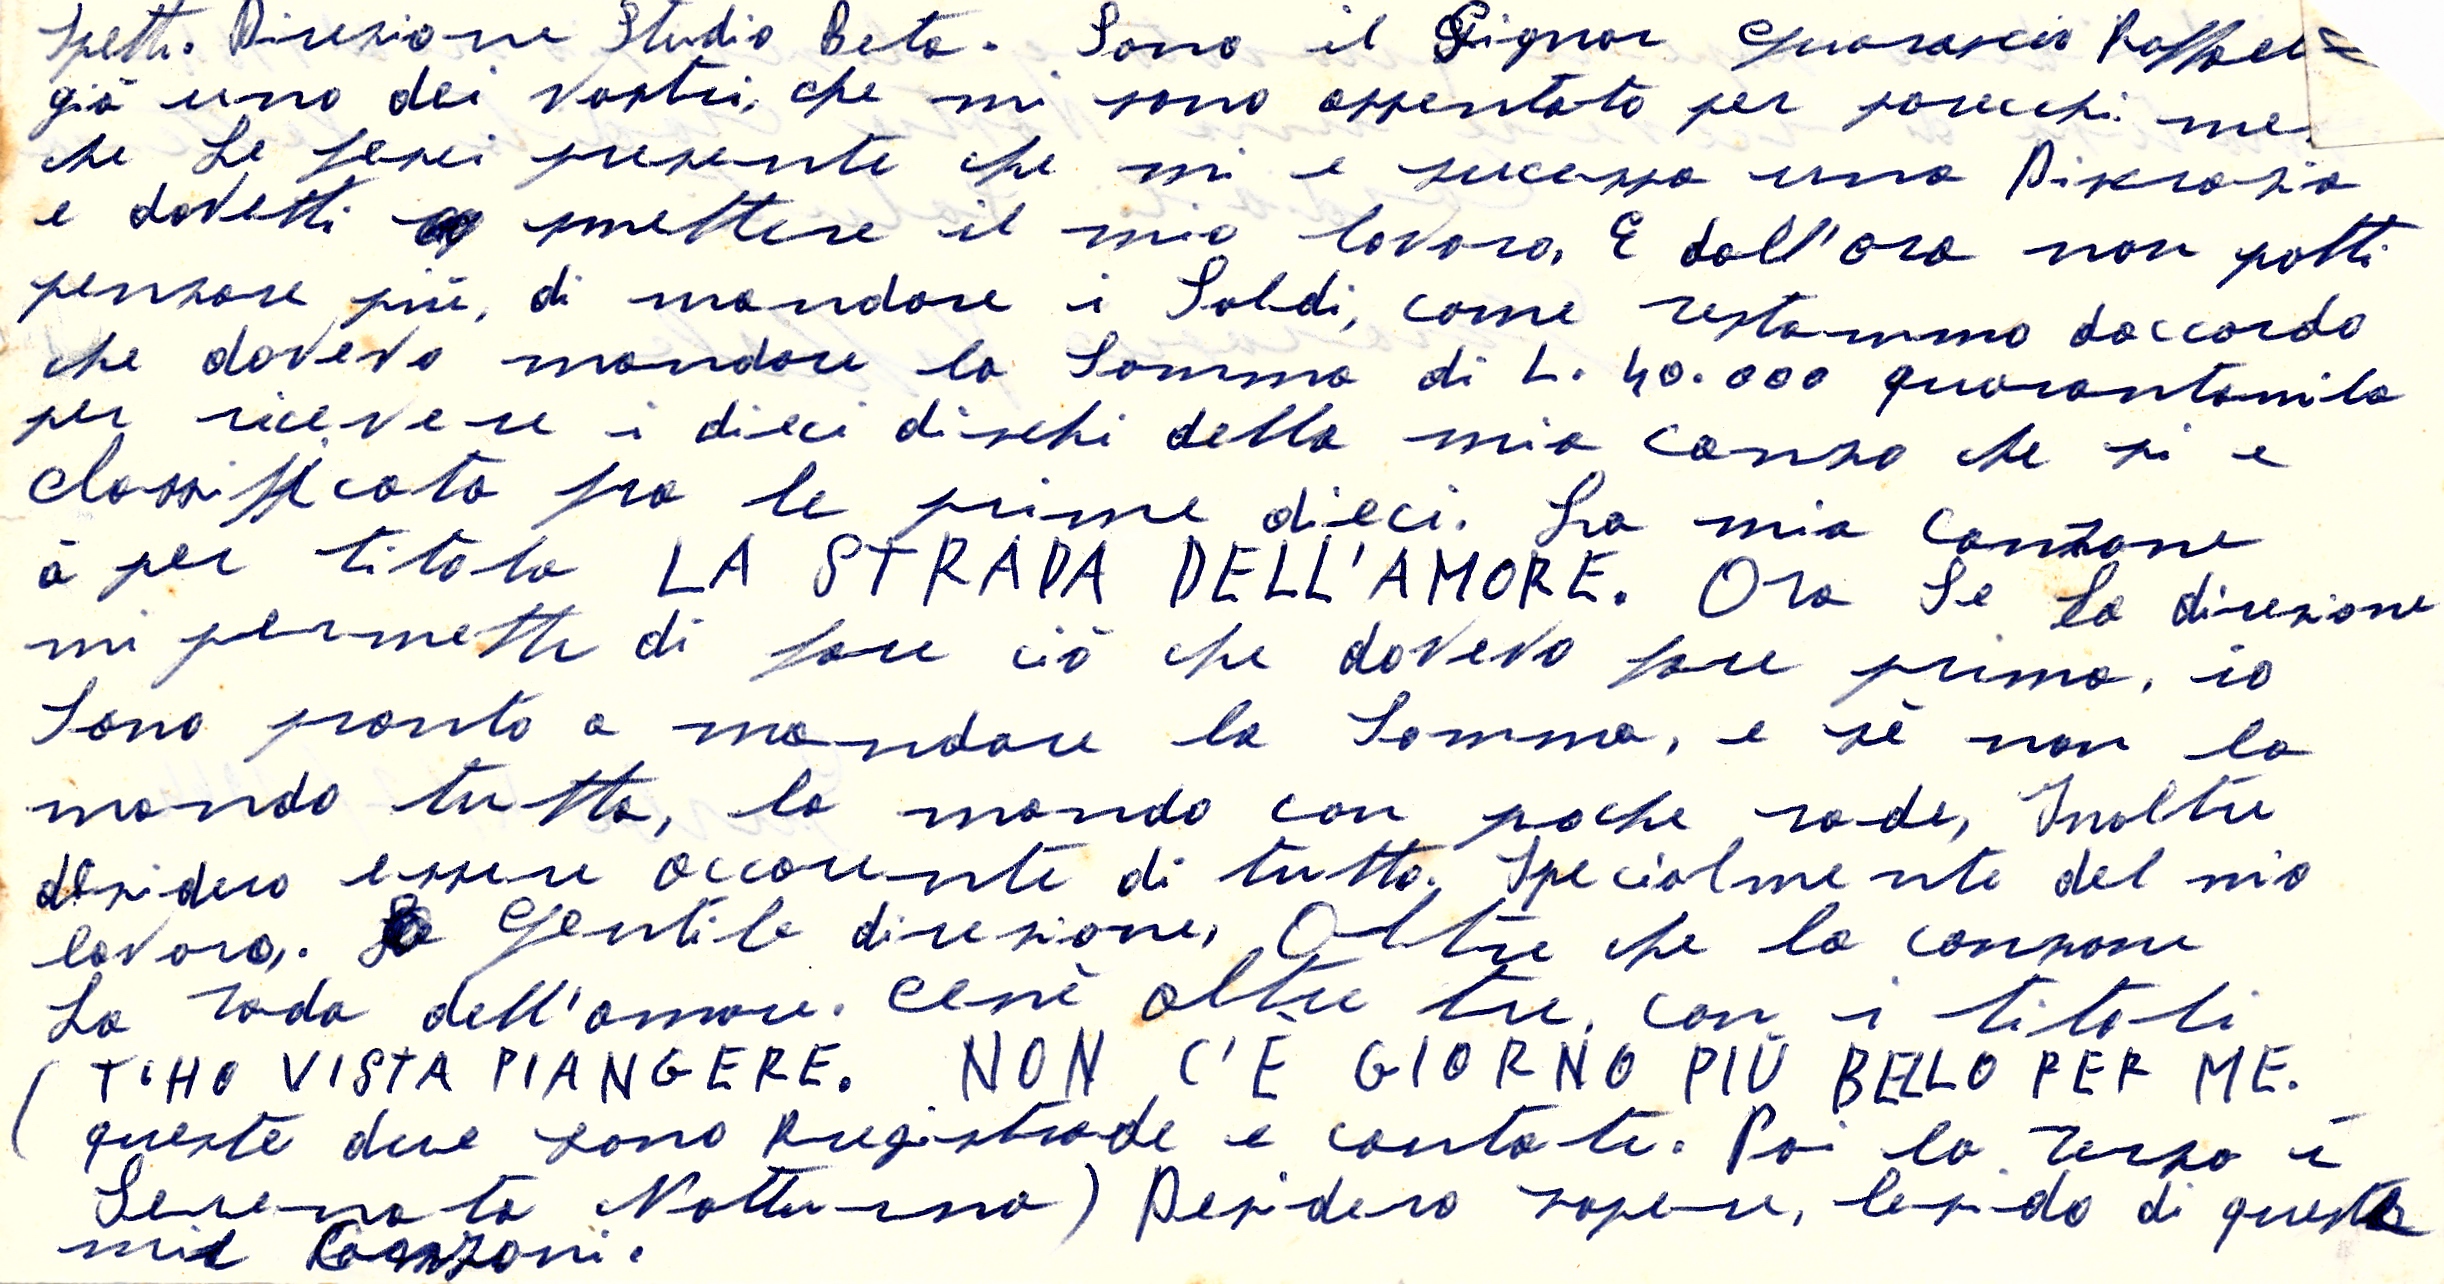 Spett. Direzione Studio Beta. Sono il Signor Guarascio Raffael=
già uno dei vostri, che mi sono assentato per parecchi me
che Le feci presente che mi e sucessa una Discrazia
e dovetti smettere il mio lavoro, E dall'ora non potti
pensare più, di mandare i Soldi, come restammo daccordo
che dovevo mandare la Somma di L. 40.000 quarantamila
per ricevere i dieci dischi della mia canzo che si e
classificata fra le prime dieci. La mia Canzone
à per titolo LA STRADA DELL'AMORE. Ora Se La direzione
mi permette di fare ciò che dovevo fare prima, io
Sono pronto a mandare la Somma, e sè non la
mando tutta, la mando con poche rade, Inoltre
desidero essere accorente di tutto. Specialmente del mio
lavoro,. Gentile direzione, Oltre che la canzone
La rada dell'amore. cenè altre tre, con i titoli
( T'HO VISTA PIANGERE. NON C'È GIORNO PIÙ BELLO PER ME.
queste due sono Rregistrade e cantate. Poi la terza è
Serenata Notturna) Desidero sapere, lesido di queste
mie Canzoni.